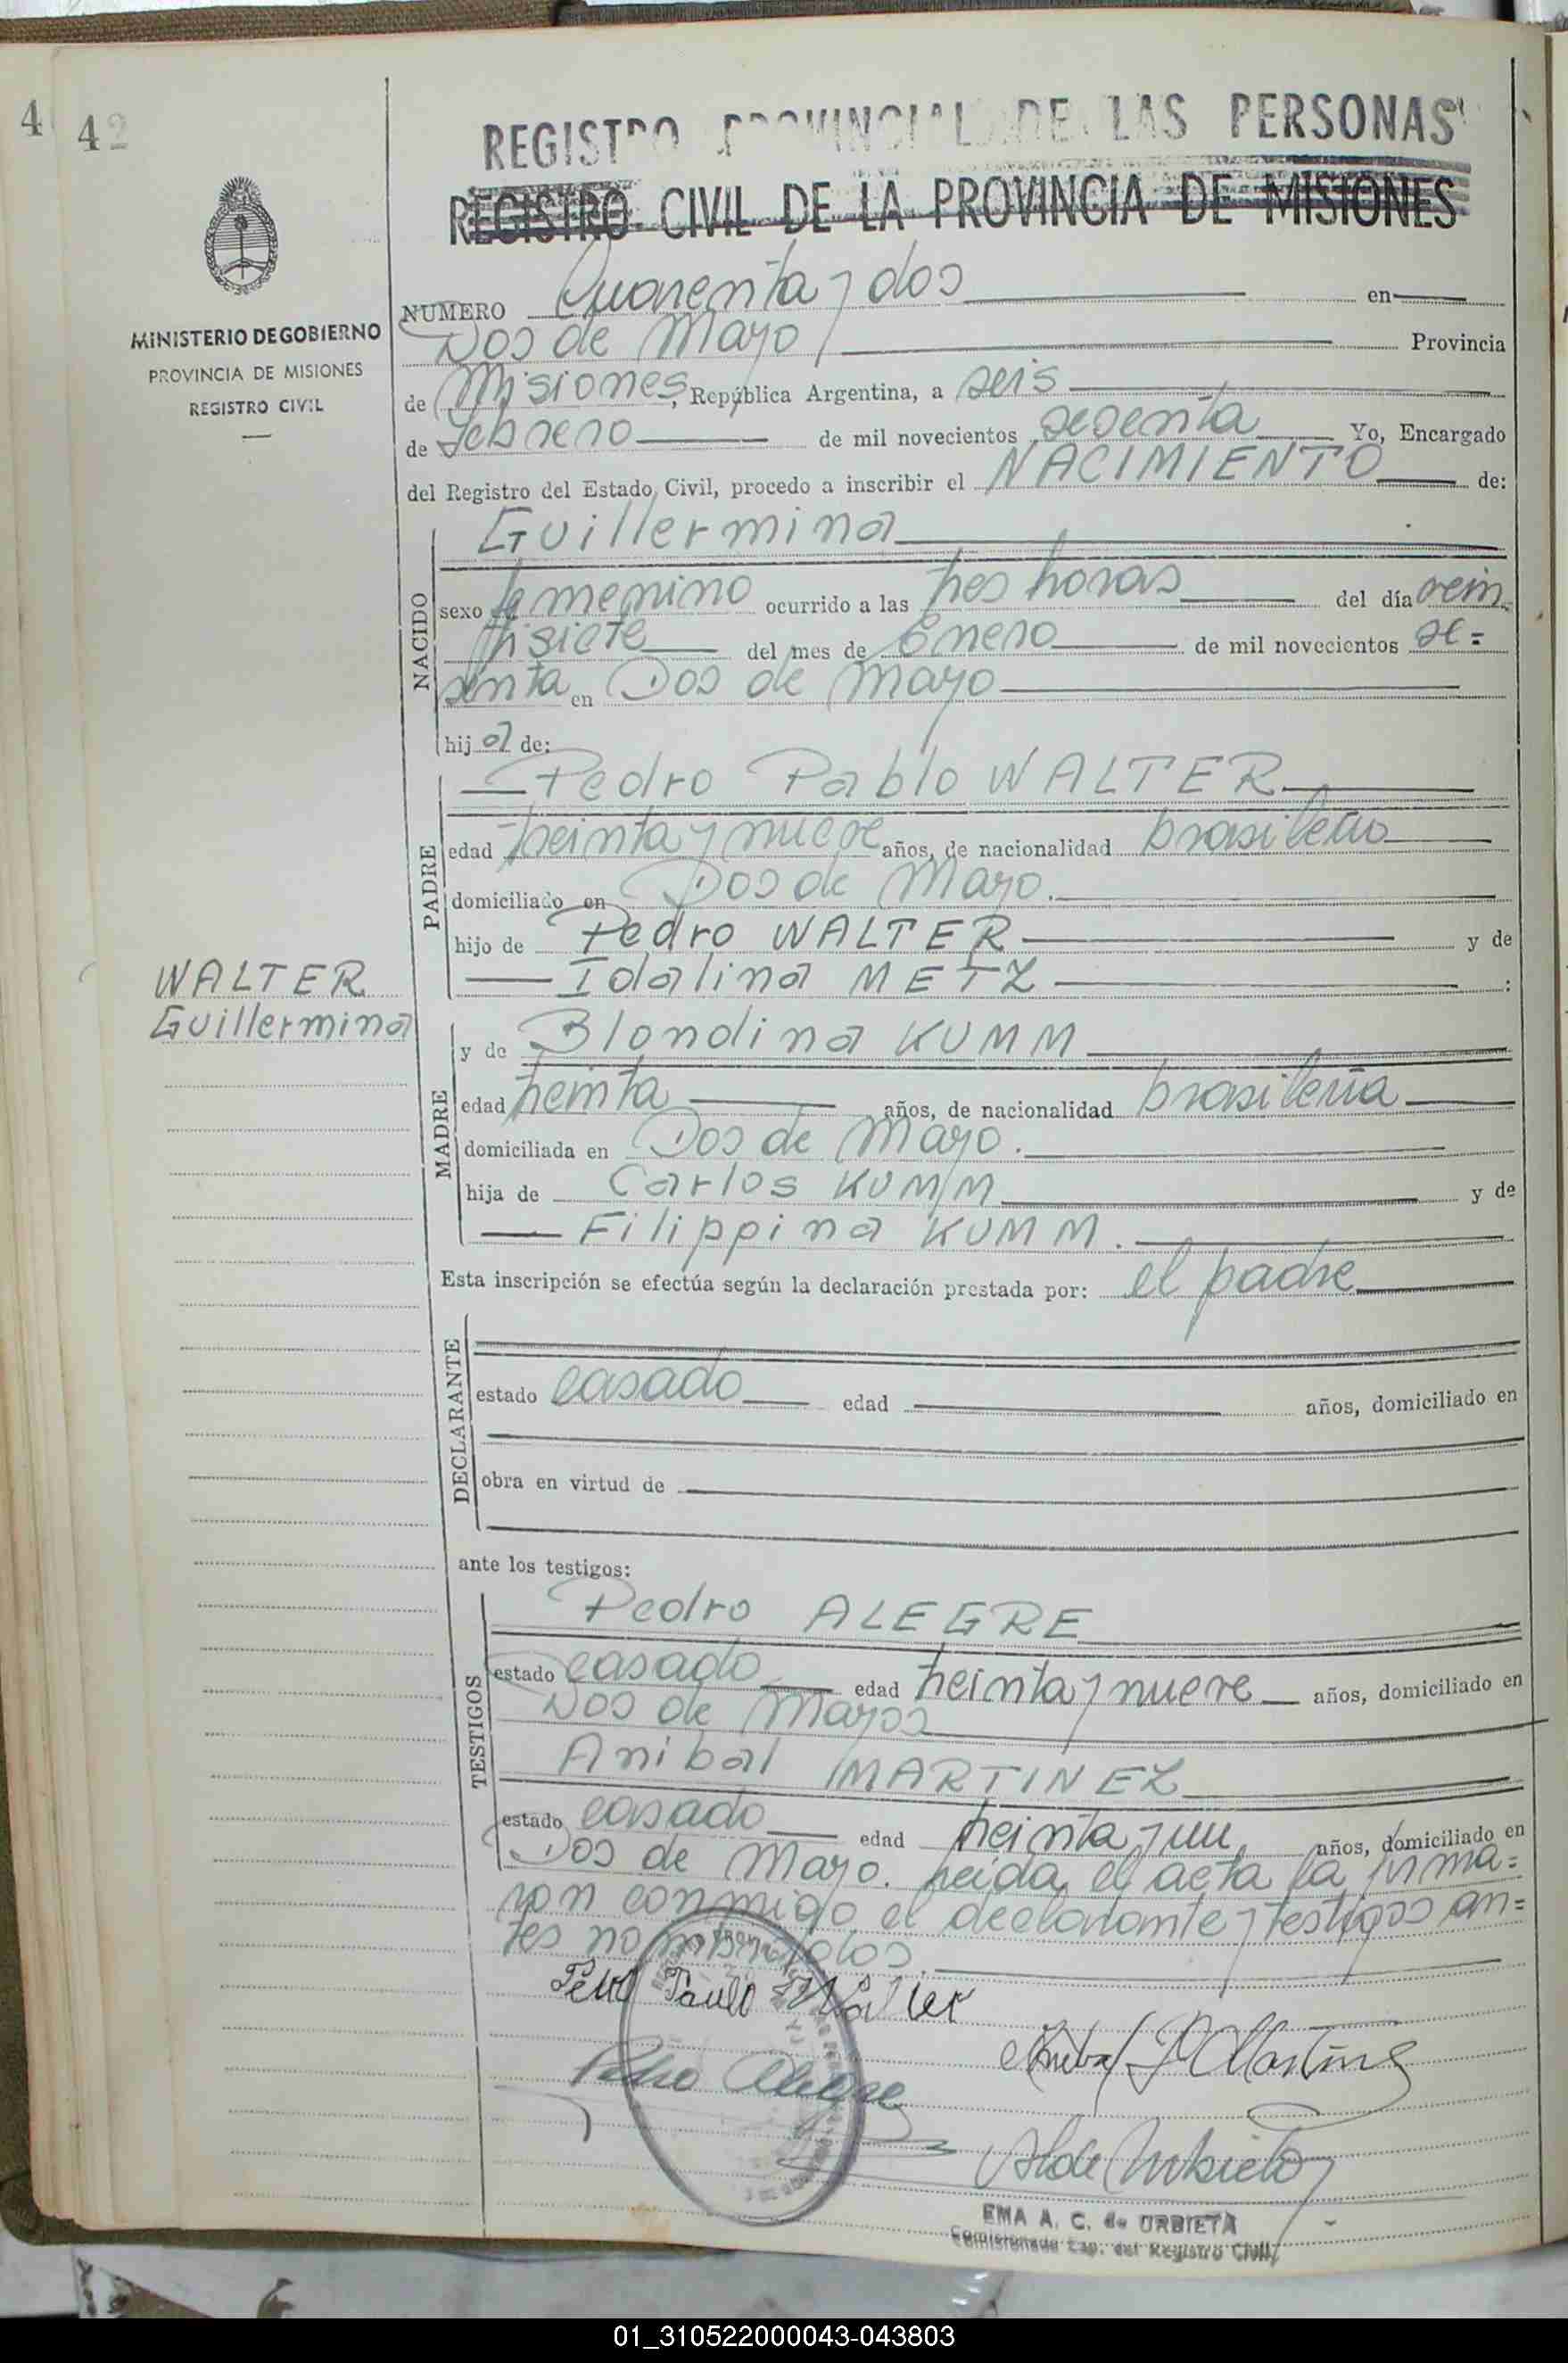 4 42
REGISTRO PROVINCIAL DE LAS PERSONAS
REGISTRO CIVIL DE LA PROVINCIA DE MISIONES
MINISTERIO DE GOBIERNO
PROVINCIA DE MISIONES
REGISTRO CIVIL
NUMERO Cuarenta y dos en
Dos de Mayo Provincia
de Misiones, República Argentina, a seis
de Febrero de mil novecientos sesenta Yo, Encargado
del Registro del Estado Civil, procedo a inscribir el NACIMIENTO de:
NACIDO
Guillermina
sexo femenino ocurrido a las tres horas del día vein
tisiete del mes de Enero de mil novecientos se=
senta en Dos de Mayo
hija de:
PADRE
Pedro Pablo WALTER
edad treinta y nueve años, de nacionalidad brasileño
domiciliado en Dos de Mayo.
hijo de Pedro WALTER y de
Idalina METZ :
WALTER
Guillermina
MADRE
y de Blondina KUMM
edad treinta años, de nacionalidad brasileña
domiciliada en Dos de Mayo.
hija de Carlos KUMM y de
Filippina KUMM.
Esta inscripción se efectúa según la declaración prestada por: el padre
DECLARANTE
estado casado edad años, domiciliado en
obra en virtud de
ante los testigos:
TESTIGOS
Pedro ALEGRE
estado casado edad treinta y nueve años, domiciliado en
Dos de Mayo
Anibal MARTINEZ
estado casado edad treinta y un años, domiciliado en
Dos de Mayo. Leida el acta la firma=
ron conmigo el declarante y testigos an=
tes nombrados.
Pedro Paulo Walter
Anibal Martinez
Pedro Alegre
EMA A. C. de URBIETA
Comisionada Esp. del Registro Civil
01_310522000043-043803